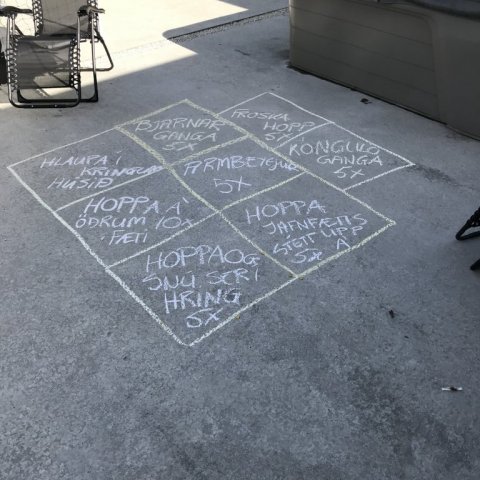 BJARNAR
GANGA
5X
FROSKA
HOPP
5X
HLAUPA Í
KRINGUM
HÚSIÐ
ARMBEYGJUR
5X
KÓNGULÓ
GANGA
5X
HOPPA Á
ÖÐRUM 10X
FÆTI
HOPPA
JAFNFÆTIS
5X
HOPPA OG
SNÚ
HRING
5X